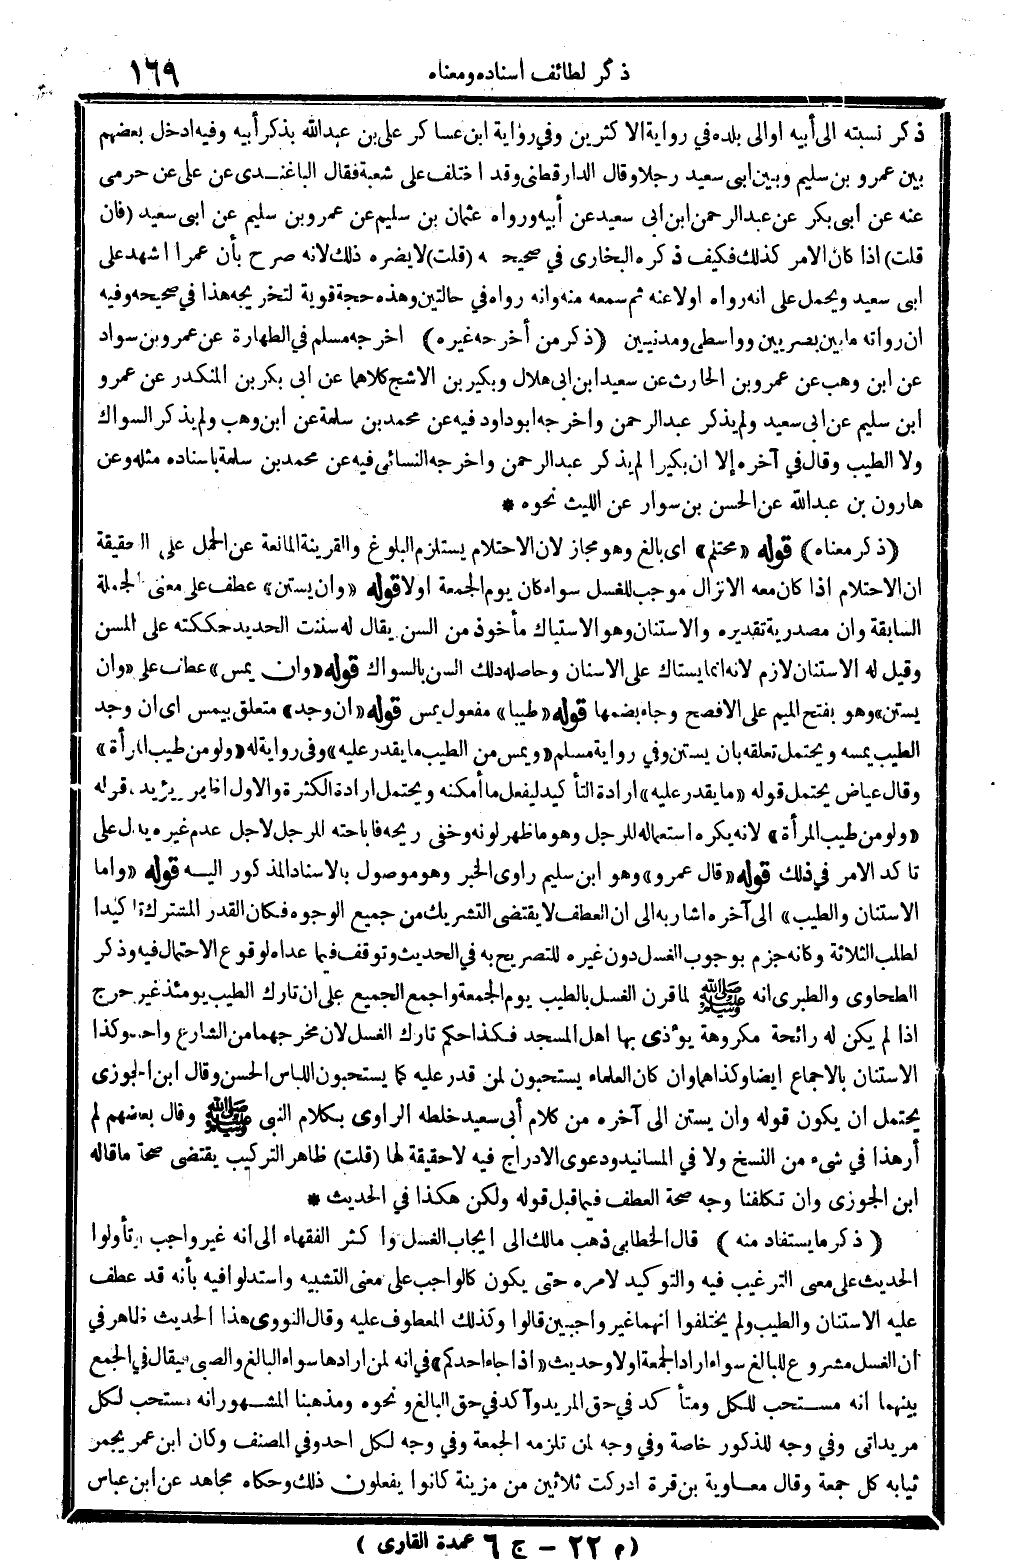 ذكر لطائف اسناده ومعناه ١٦٩
ذكر نسبته الى أبيه او الى بلده في رواية الاكثرين وفي رواية ابن عساكر على بن عبدالله بذكر أبيه وفيه ادخل بعضهم
بين عمرو بن سليم وبين ابى سعيد رجلا وقال الدارقطنى وقد اختلف على شعبة فقال الباغندى عن على عن حرمى
عنه عن ابى بكر عن عبدالرحمن ابن ابى سعيد عن أبيه ورواه عثمان بن سليم عن عمرو بن سليم عن ابى سعيد (فان
قلت) اذا كان الامر كذلك فكيف ذكره البخارى في صحيحه (قلت) لا يضره ذلك لانه صرح بأن عمرا اشهد على
ابى سعيد ويحمل على انه رواه اولا عنه ثم سمعه منه وانه رواه في حالتين وهذه حجة قوية لتخريجه هذا في صحيحه وفيه
ان رواته ما بين بصريين وواسطى ومدنيين (ذكر من أخرجه غيره) اخرجه مسلم في الطهارة عن عمرو بن سواد
عن ابن وهب عن عمرو بن الحارث عن سعيد ابن ابى هلال وبكير بن الاشج كلاهما عن ابى بكر بن المنكدر عن عمرو
ابن سليم عن ابى سعيد ولم يذكر عبدالرحمن واخرجه ابو داود فيه عن محمد بن سلمة عن ابن وهب ولم يذكر السواك
ولا الطيب وقال في آخره إلا ان بكيرا لم يذكر عبدالرحمن واخرجه النسائى فيه عن محمد بن سلمة باسناده مثله وعن
هارون بن عبدالله عن الحسن بن سوار عن الليث نحوه *
(ذكر معناه) قوله «محتلم» اى بالغ وهو مجاز لان الاحتلام يستلزم البلوغ والقرينة المانعة عن الحمل على الحقيقة
ان الاحتلام اذا كان معه الانزال موجب للغسل سواء كان يوم الجمعة اولا قوله «وان يستن» عطف على معنى الجملة
السابقة وان مصدرية تقديره والاستنان وهو الاستياك مأخوذ من السن يقال له سننت الحديد حككته على المسن
وقيل له الاستنان لازم لانه انما يستاك على الاسنان وحاصله دلك السن بالسواك قوله «وان يمس» عطف على «وان
يستن» وهو بفتح الميم على الافصح وجاء بضمها قوله «طيبا» مفعول يمس قوله «ان وجد» متعلق بيمس اى ان وجد
الطيب يمسه ويحتمل تعلقه بان يستن وفي رواية مسلم «ويمس من الطيب ما يقدر عليه» وفى رواية له «ولو من طيب المرأة»
وقال عياض يحتمل قوله «ما يقدر عليه» ارادة التأكيد ليفعل ما أمكنه ويحتمل ارادة الكثرة والاول اظهر ويؤيده قوله
«ولو من طيب المرأة» لانه يكره استعماله للرجل وهو ما ظهر لونه وخفى ريحه فاباحته للرجل لاجل عدم غيره يدل على
تاكد الامر في ذلك قوله «قال عمرو» وهو ابن سليم راوى الخبر وهو موصول بالاسناد المذكور اليه قوله «واما
الاستنان والطيب» الى آخره اشار به الى ان العطف لا يقتضى التشريك من جميع الوجوه فكان القدر المشترك تأكيدا
لطلب الثلاثة وكانه جزم بوجوب الغسل دون غيره للتصريح به في الحديث وتوقف فيما عداه لوقوع الاحتمال فيه وذكر
الطحاوى والطبرى انه ﷺ لما قرن الغسل بالطيب يوم الجمعة واجمع الجميع على ان تارك الطيب يومئذ غير حرج
اذا لم يكن له رائحة مكروهة يؤذى بها اهل المسجد فكذا حكم تارك الغسل لان مخرجهما من الشارع واحد وكذا
الاستنان بالاجماع ايضا وكذا هما وان كان العلماء يستحبون لمن قدر عليه كما يستحبون اللباس الحسن وقال ابن الجوزى
يحتمل ان يكون قوله وان يستن الى آخره من كلام أبى سعيد خلطه الراوى بكلام النبى ﷺ وقال بعضهم لم
أر هذا في شىء من النسخ ولا في المسانيد ودعوى الادراج فيه لا حقيقة لها (قلت) ظاهر التركيب يقتضى صحة ما قاله
ابن الجوزى وان تكلفنا وجه صحة العطف فيما قبل قوله ولكن هكذا في الحديث *
(ذكر ما يستفاد منه) قال الخطابى ذهب مالك الى ايجاب الغسل واكثر الفقهاء الى انه غير واجب وتأولوا
الحديث على معنى الترغيب فيه والتوكيد لامره حتى يكون كالواجب على معنى التشبيه واستدلوا فيه بأنه قد عطف
عليه الاستنان والطيب ولم يختلفوا انهما غير واجبين قالوا وكذلك المعطوف عليه وقال النووى هذا الحديث ظاهر في
أن الغسل مشروع للبالغ سواء اراد الجمعة اولا وحديث «اذا جاء احدكم» في انه لمن ارادها سواء البالغ والصبى فيقال في الجمع
بينهما انه مستحب للكل ومتأكد في حق المريد وآكد في حق البالغ ونحوه ومذهبنا المشهور انه مستحب لكل
مريد اتى وفي وجه للذكور خاصة وفي وجه لمن تلزمه الجمعة وفي وجه لكل احد وفي المصنف وكان ابن عمر يجمر
ثيابه كل جمعة وقال معاوية بن قرة ادركت ثلاثين من مزينة كانوا يفعلون ذلك وحكاه مجاهد عن ابن عباس
(م ٢٢ - ج ٦ عمدة القارى)